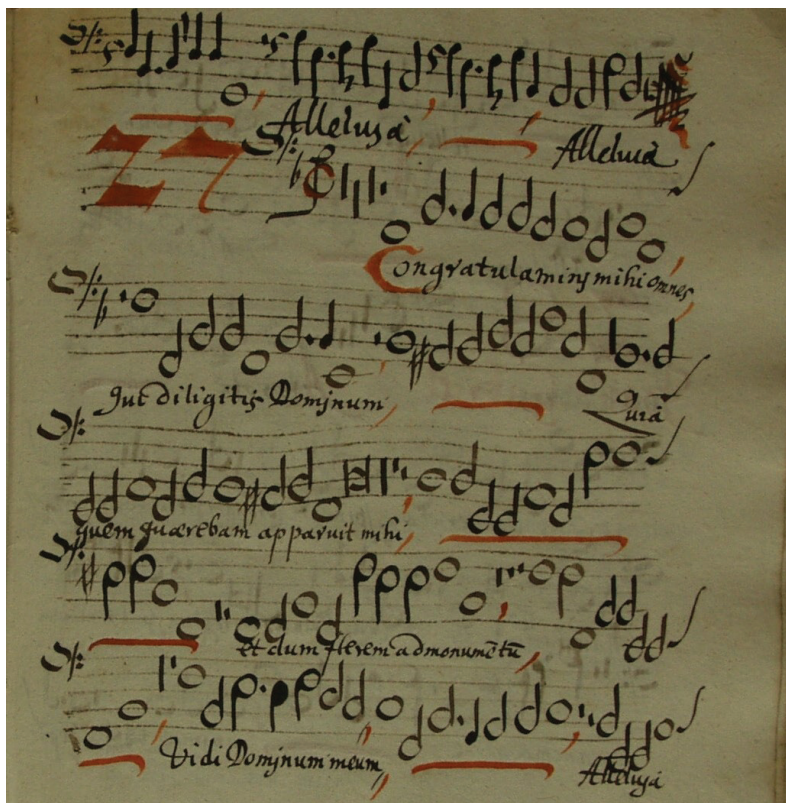 Alleluja Alleluia
27
Congratulaminj mihi omnes,
Quc diligitis Domjnum Quiã
quem quærebam apparuit mihi
et dum flerem ad monumētū
Vidi Domjnum meum Alleluja